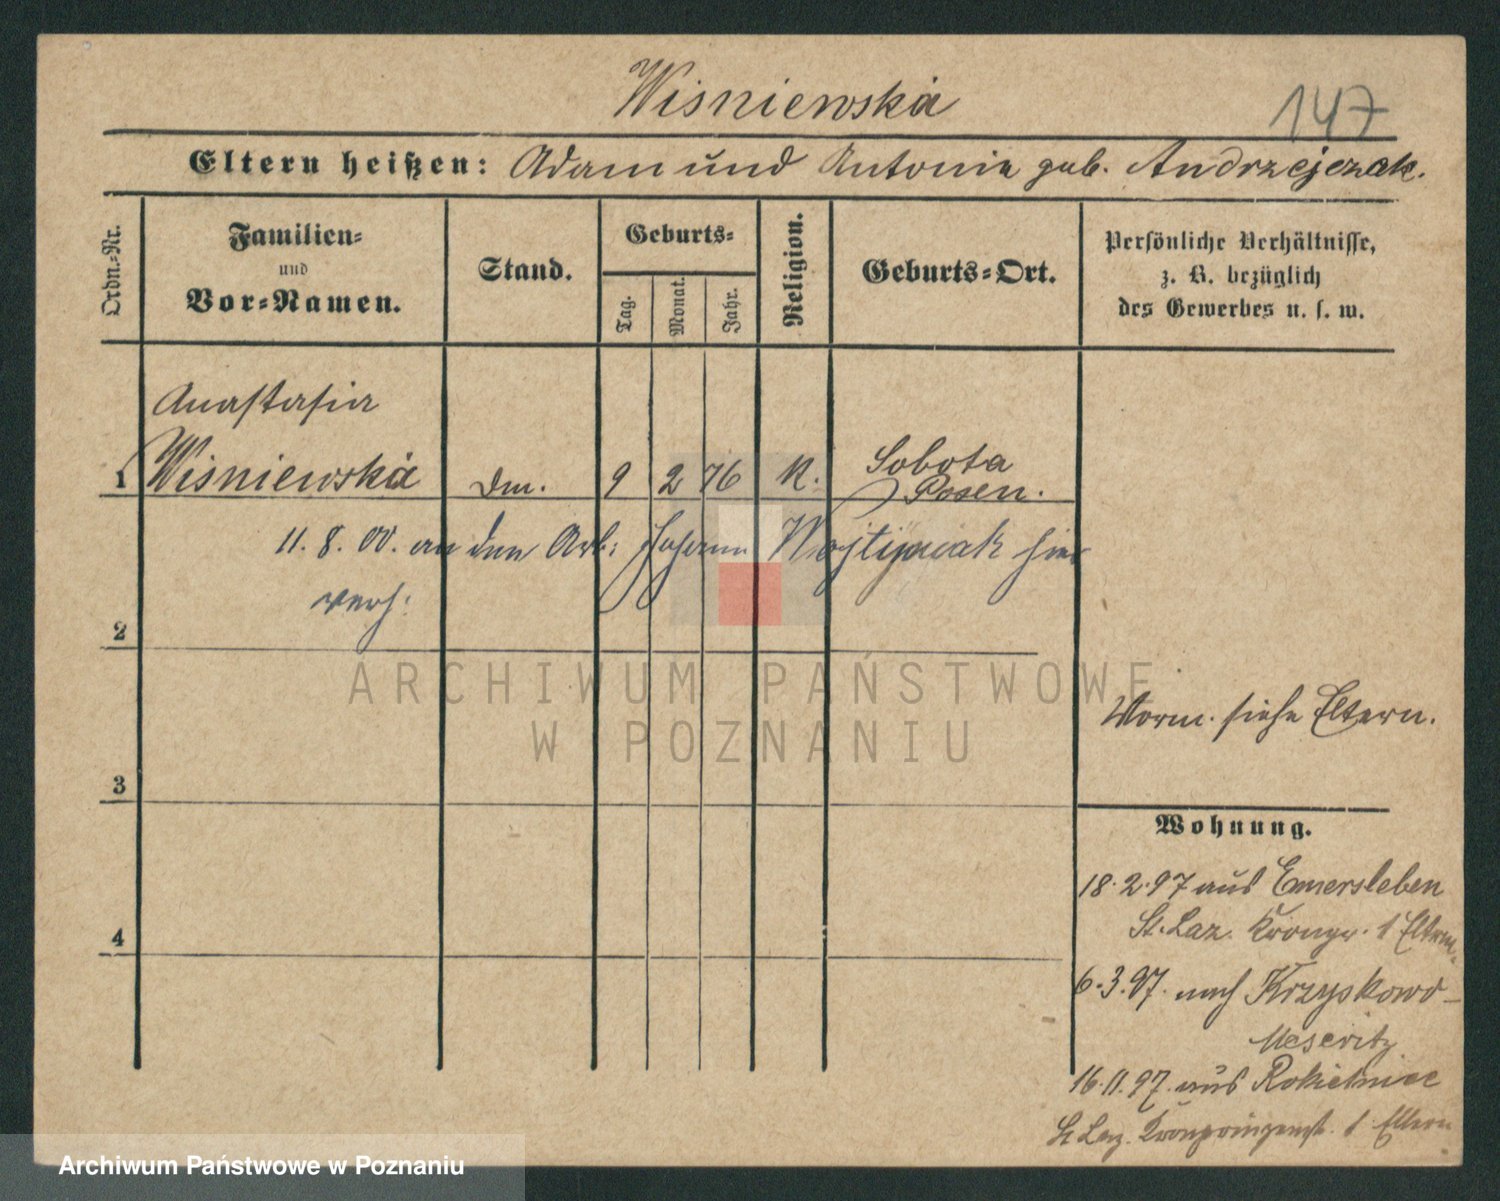 Wisniewska
147
Eltern heißen: Adam und Antonie geb. Andrzejczak.
Ordn.-Nr.
Familien-
und
Vor-Namen.
Stand.
Geburts-
Tag.
Monat.
Jahr.
Religion.
Geburts-Ort.
Persönliche Verhältnisse,
z. B. bezüglich
des Gewerbes u. s. w.
Anastasia
1 Wisniewska
9 2 76 K.
Sobota
Posen.
11. 8. 00. an den Arb: Johann hier
verh:
2
3
4
Vorm. siehe Eltern.
Wohnung.
18.2.97 aus Emersleben
St. Laz. Kronpr. 1 Eltern.
6.3.97. nach Krzyskowo-
Meseritz
16.11.97. aus Rokietnice
St Laz. Kronprinzenstr. 1 Eltern
ARCHIWUM PAŃSTWOWE
W POZNANIU
Archiwum Państwowe w Poznaniu